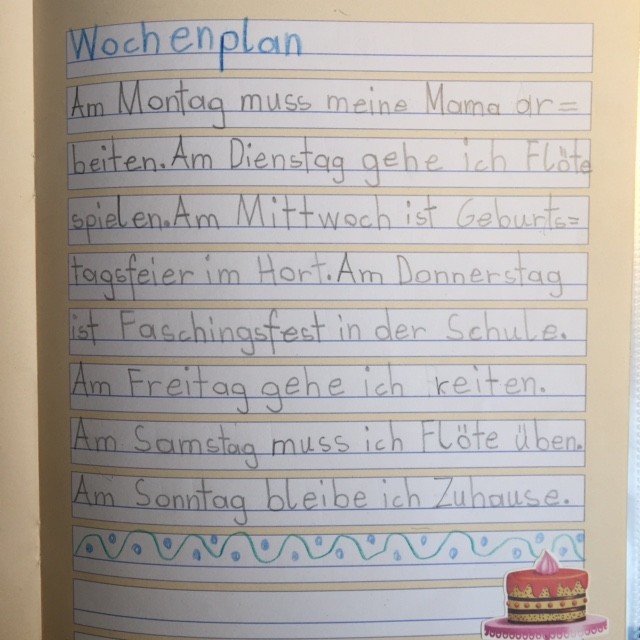 Wochenplan
Am Montag muss meine Mama ar=
beiten. Am Dienstag gehe ich Flöte
spielen. Am Mittwoch ist Geburts=
tagsfeier im Hort. Am Donnerstag
ist Faschingsfest in der Schule.
Am Freitag gehe ich reiten.
Am Samstag muss ich Flöte üben.
Am Sonntag bleibe ich Zuhause.